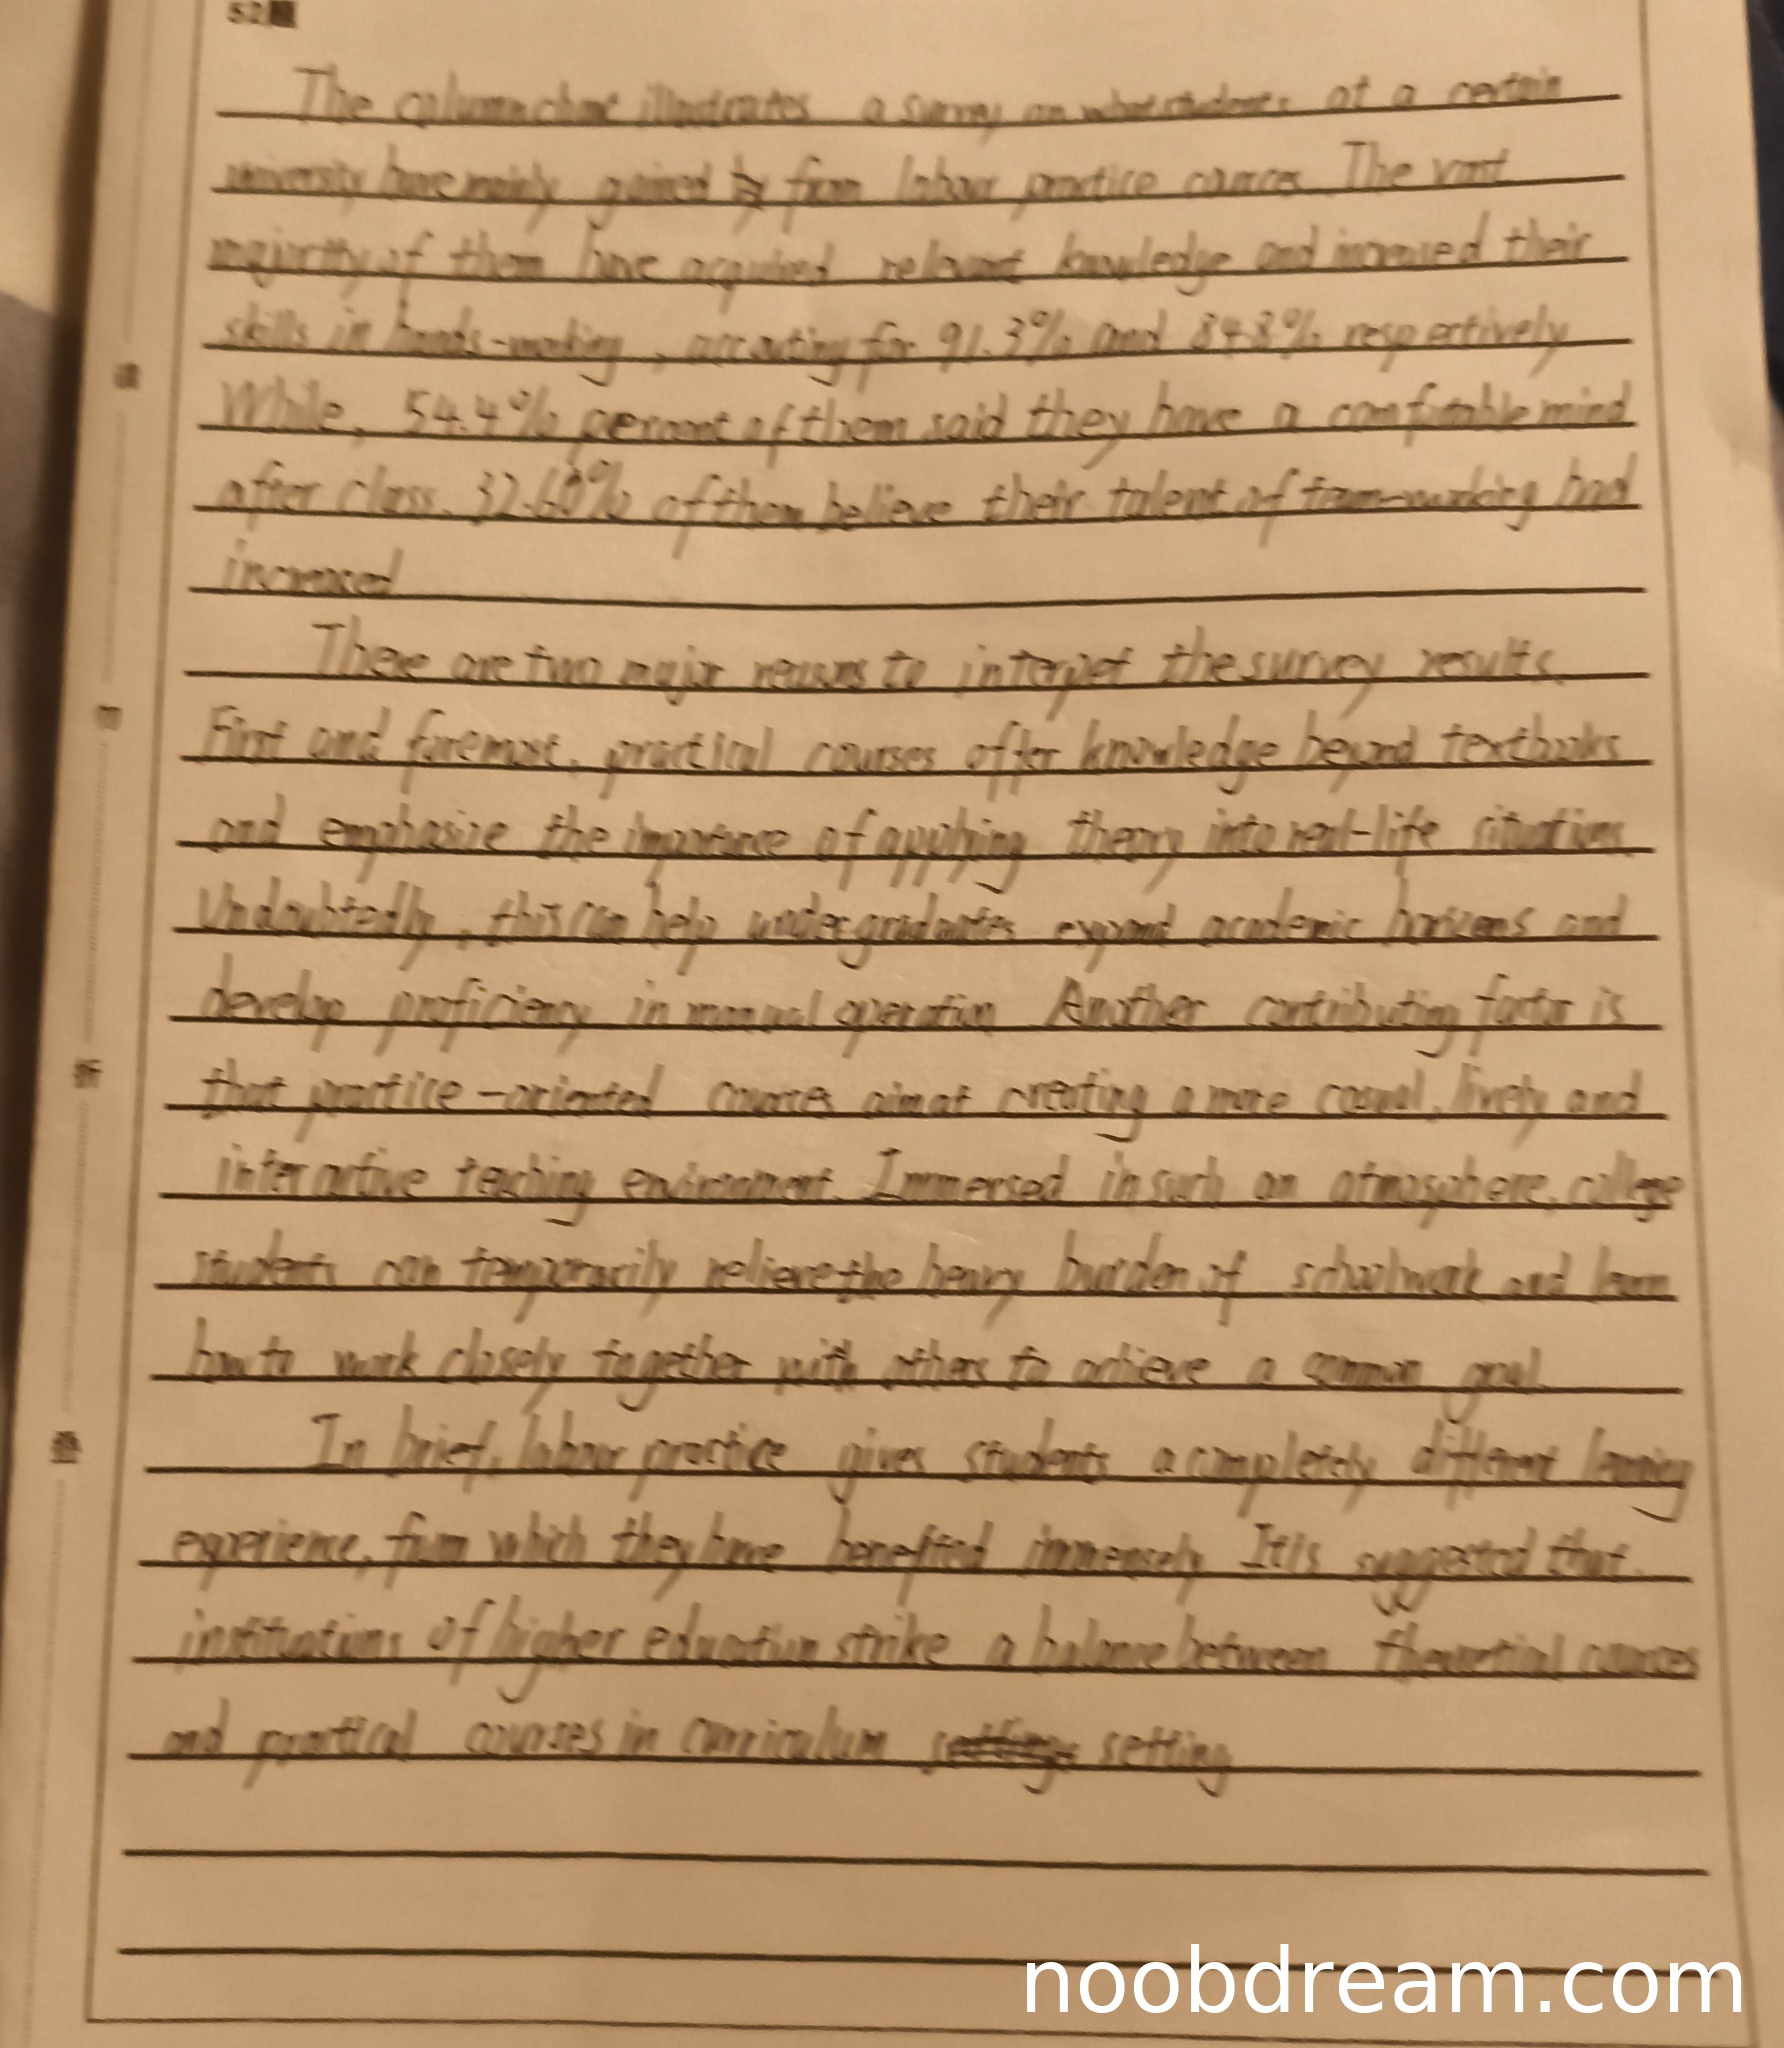 52题
The column chart illustrates a survey on what students at a certain
university have mainly gained from labour practice courses The vast
majority of them have acquired relevant knowledge and increased their
skills in hands-making, accouting for 91.3% and 84.8% respectively
While, 54.4% percent of them said they have a comfortable mind
after class. 32.60% of them believe their talent of team-working had
increased
There are two major reasons to interpet the survey results.
First and foremost, practical courses offer knowledge beyond textbooks
and emphasize the importance of applying theory into real-life situations
Undoubtedly, this can help undergraduates expand academic horizens and
develop proficiency in manual operation Another contributing factor is
that practice-oriented courses aim at creating a more casual, lively and
interactive teaching environment. Immersed in such an atmosphere, college
students can temporarily relieve the heavy burden of schoolwork and learn
how to work closely together with others to achieve a common goal.
In brief, labour practice gives students a completely different learning
experience, from which they have benefited immensely It is suggested that
institutions of higher education strike a balance between theoretical courses
and practical courses in curriculum setting
勿
折
叠
noobdream.com